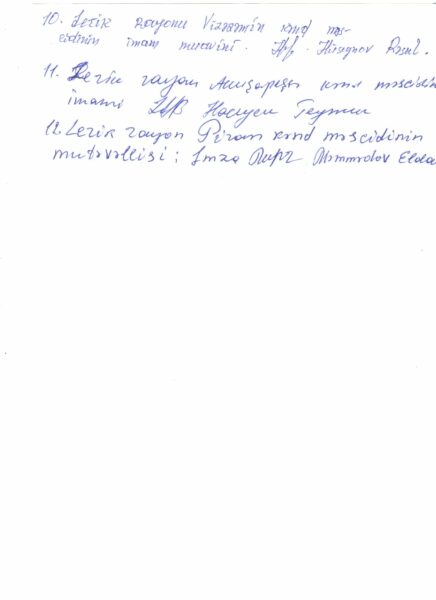 10. Lerik rayonu Vizəzəmin kənd məs-
cidinin imam muavini. Hüseynov Rasul.
11. Lerik rayon kənd məscidin
imami Hacıyev Teymur
12. Lerik rayon Piran kənd məscidinin
mutəvəllisi; Imza Məmmədov Elda